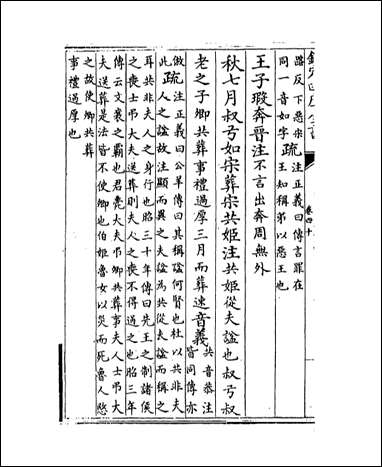 欽定四庫全書
卷四十
蹈反下惡宗
同一音如字
疏注正義曰傳言罪在
王知稱弟以惡王也
王子瑕奔晉注不言出奔周無外
秋七月叔弓如宋葬宋共姬注共姬從夫諡也叔弓叔
老之子卿共葬事禮過厚三月而葬速音義
共音恭注
皆同傳亦
倣此
疏注正義曰公羊傳曰其稱諡何賢也杜以共非夫
人之諡故注顯而異之夫諡為共從夫諡而稱之
耳共非夫人之身行也昭三十年傳曰先王之制諸侯
之喪士弔大夫送葬則夫人之喪不得過之也昭三年
傳云文襄之霸也君薨大夫弔卿共葬事夫人士弔大
夫送葬是法皆不使卿也伯姬魯女以災而死魯人愍
之故使卿共葬
事禮過厚也